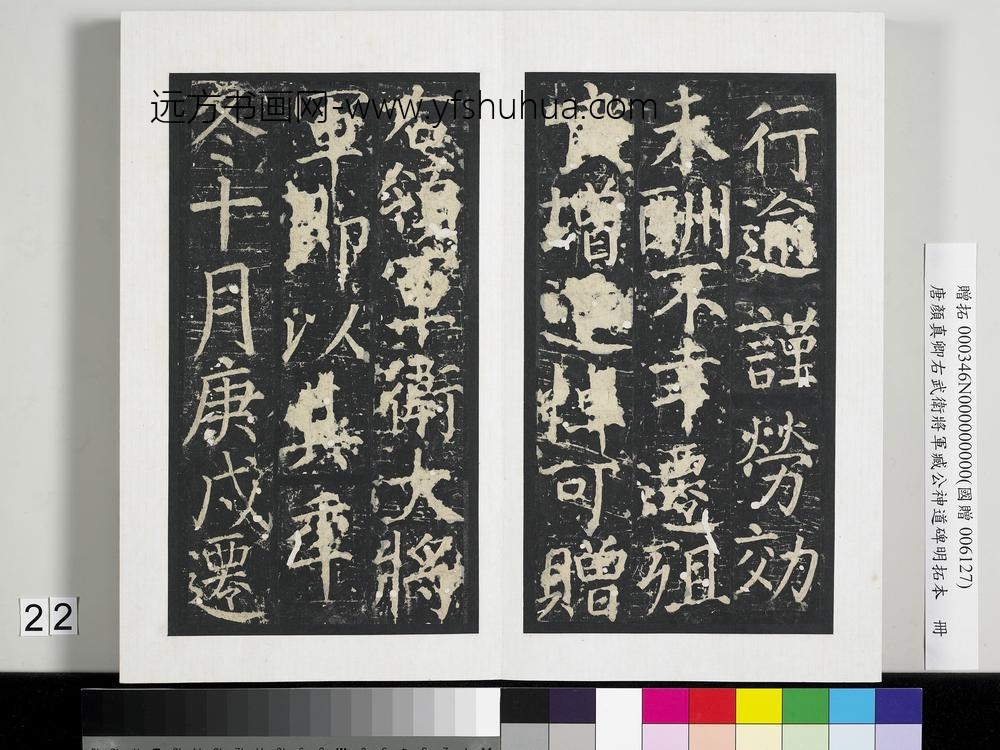 远方书画网-www.yfshuhua.com
行逾謹勞効
未酬不幸遷殂
良增追悼可贈
右領軍衛大將
軍即以其年
冬十月庚戌遷
贈拓 000346N000000000(國贈 006127)
唐顏真卿右武衛將軍臧公神道碑明拓本 冊
22